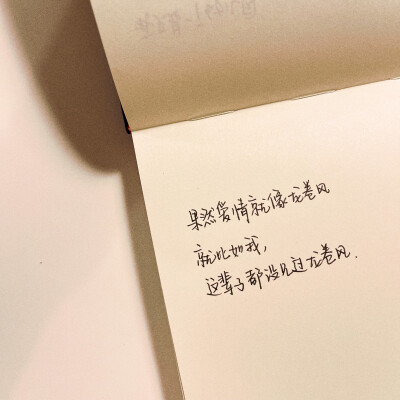 果然爱情就像龙卷风
就比如我，
这辈子都没见过龙卷风.